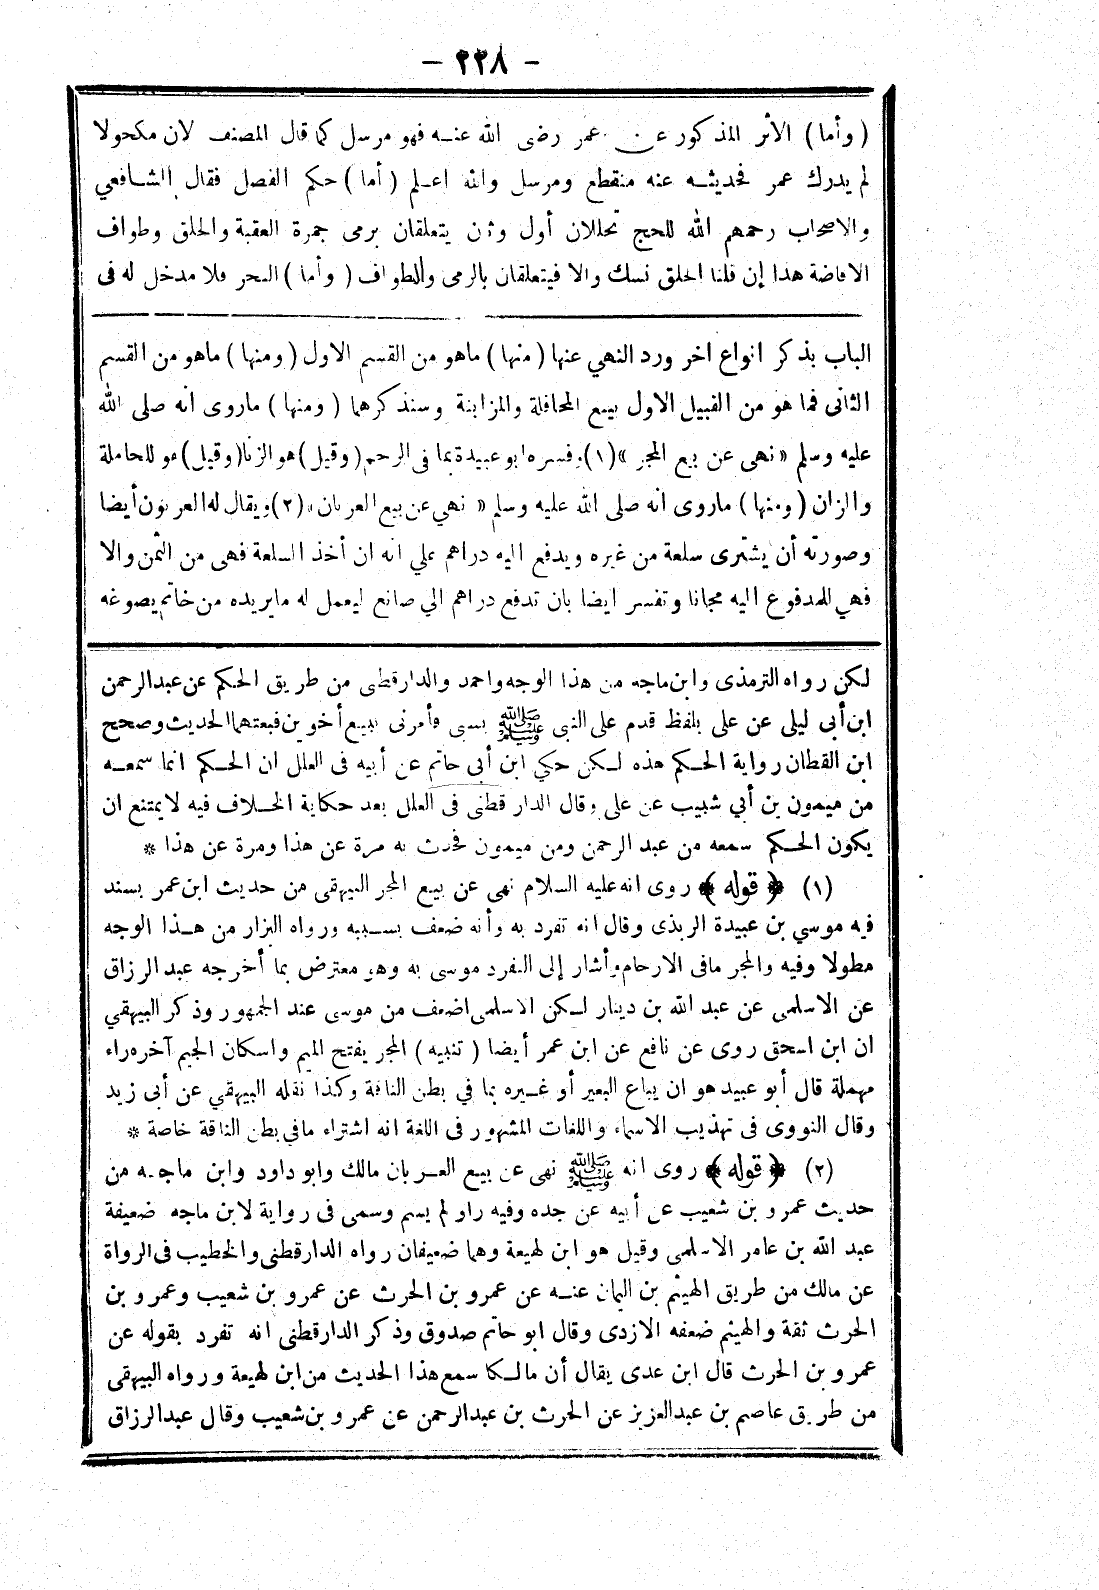 – ٢٢٨ –
(وأما) الأثر المذكور عن عمر رضى الله عنه فهو مرسل كما قال المصنف لان مكحولا
لم يدرك عمر فحديثه عنه منقطع ومرسل والله اعلم (أما) حكم الفصل فقال الشافعي
والاصحاب رحمهم الله للحج تحللان أول وثان يتعلقان برمى جمرة العقبة والحلق وطواف
الافاضة هذا إن قلنا الحلق نسك والا فيتعلقان بالرمى والطواف (وأما) النحر فلا مدخل له فى
الباب بذكر انواع اخر ورد النهي عنها (منها) ماهو من القسم الاول (ومنها) ماهو من القسم
الثانى فما هو من القبيل الاول بيع المحاقلة والمزابنة وسنذكرهما (ومنها) ماروى انه صلى الله
عليه وسلم «نهى عن بيع المجر» (١) وفسره ابو عبيدة بما فى الرحم (وقيل) هو الزنا (وقيل) هو للحاملة
والزان (ومنها) ماروى انه صلى الله عليه وسلم «نهي عن بيع العربان» (٢) ويقال له العربون أيضا
وصورته أن يشترى سلعة من غيره ويدفع اليه دراهم علي انه ان أخذ السلعة فهى من الثمن والا
فهي للمدفوع اليه مجانا وتفسر ايضا بان تدفع دراهم الي صانع ليعمل له مايريده من خاتم يصوغه
لكن رواه الترمذى وابن ماجه من هذا الوجه واحمد والدارقطنى من طريق الحكم عن عبد الرحمن
ابن أبى ليلى عن على بلفظ قدم على النبى ﷺ بسبى فأمرنى ببيع أخوين فبعتهما الحديث وصحح
ابن القطان رواية الحكم هذه لكن حكي ابن أبى حاتم عن أبيه فى العلل ان الحكم انما سمعه
من ميمون بن أبي شبيب عن على وقال الدار قطنى فى العلل بعد حكاية الخلاف فيه لا يمتنع ان
يكون الحكم سمعه من عبد الرحمن ومن ميمون فحدث به مرة عن هذا ومرة عن هذا *
(١) ﴿قوله﴾ روى انه عليه السلام نهى عن بيع المجر البيهقى من حديث ابن عمر بسند
فيه موسي بن عبيدة الربذى وقال انه تفرد به وأنه ضعف بسببه ورواه البزار من هذا الوجه
مطولا وفيه والمجر مافى الارحام وأشار إلى التفرد موسى به وهو معترض بما أخرجه عبد الرزاق
عن الاسلمى عن عبد الله بن دينار لكن الاسلمى اضعف من موسى عند الجمهور وذكر البيهقي
ان ابن اسحق روى عن نافع عن ابن عمر أيضا (تنبيه) المجر بفتح الميم واسكان الجيم آخره راء
مهملة قال أبو عبيد هو ان يباع البعير أو غيره بما في بطن الناقة وكذا نقله البيهقي عن أبى زيد
وقال النووى فى تهذيب الاسماء واللغات المشهور فى اللغة انه اشتراء مافي بطن الناقة خاصة *
(٢) ﴿قوله﴾ روى انه ﷺ نهى عن بيع العربان مالك وابو داود وابن ماجه من
حديث عمرو بن شعيب عن أبيه عن جده وفيه راو لم يسم وسمى فى رواية لابن ماجه ضعيفة
عبد الله بن عامر الاسلمى وقيل هو ابن لهيعة وهما ضعيفان رواه الدارقطنى والخطيب فى الرواة
عن مالك من طريق الهيثم بن اليمان عنه عن عمرو بن الحرث عن عمرو بن شعيب وعمرو بن
الحرث ثقة والهيثم ضعفه الازدى وقال ابو حاتم صدوق وذكر الدارقطنى انه تفرد بقوله عن
عمرو بن الحرث قال ابن عدى يقال أن مالكا سمع هذا الحديث من ابن لهيعة ورواه البيهقى
من طريق عاصم بن عبدالعزيز عن الحرث بن عبدالرحمن عن عمرو بن شعيب وقال عبدالرزاق